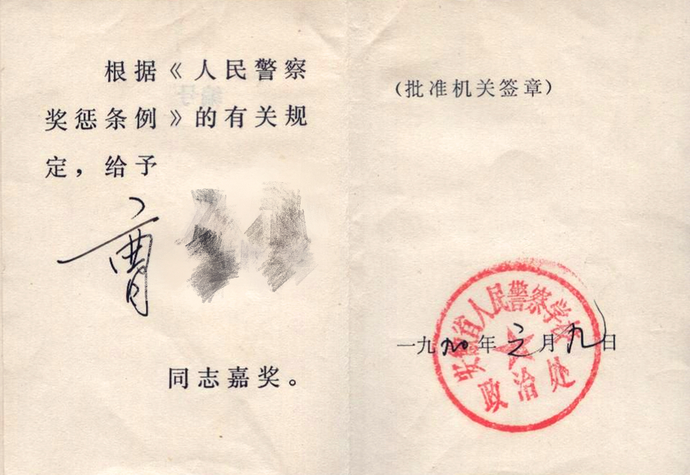 根据《人民警察
奖惩条例》的有关规
定，给予
曹
同志嘉奖。
（批准机关签章）
一九九0年 月九日
安徽省人民警察学校
政治处